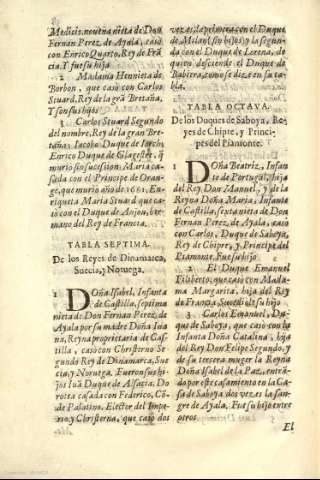 Medicis, novena nieta de Don
Fernan Perez, de Ayala, casò
con Enrico Quarto, Rey de Frã
cia. Y fue su hija
2 Madama Henrieta de
Borbon, que casò con Carlos
Stuard, Rey de la grã Bretaña,
Y son sus hijos
3 Carlos Stuard Segundo
del nombre, Rey de la gran Bre-
taña: Iacobo Duque de Iorch:
Enrico Duque de Glagester, q̃
murio sin sucesion: Maria ca-
sada con el Principe de Oran-
ge, que murio año de 1661. En-
riqueta Maria Stuard que ca-
sò con el Duque de Anjou, her-
mano del Rey de Francia.
TABLA SEPTIMA.
De los Reyes de Dinamarca,
Suecia, y Noruega.
1 DOña Isabel, Infanta
de Castilla, septima
nieta de Don Fernan Perez, de
Ayala por su madre Doña Iua
na, Reyna proprietaria de Cas-
tilla, casò con Christerno Se-
gundo Rey de Dinamarca, Sue
cia, y Noruega. Fueron sus hi-
jos Iuã Duque de Alsacia. Do
rotea casada con Federico, Cõ-
de Palatino, Elector del Impe-
rio, y Christerna, que casò dos
vezes, la primera con el Duque
de Milan (sin hijos) y la segun-
da con el Duque de Lorena, de
quien desciende el Duque de
Babiera, como se dize en su ta-
bla.
TABLA OCTAVA.
De los Duques de Saboya, Re-
yes de Chipre, y Princi-
pes del Piamonte.
1 DOña Beatriz, Infan
te de Portugal, hija
del Rey Don Manuel, y de la
Reyna Doña Maria, Infanta
de Castilla, septa nieta de Don
Fernan Perez, de Ayala, casò
con Carlos, Duque de Saboya,
Rey de Chipre, y Principe del
Piamonte. Fue su hijo
2 El Duque Emanuel
Filiberto, que casò con Mada-
ma Margarita, hija del Rey
de Francia, Siendo el su hijo
3 Carlos Emanuel, Du-
que de Saboya, que casò con la
Infanta Doña Catalina, hija
del Rey Don Felipe Segundo, y
de su tercera muger la Reyna
Doña Isabel de la Paz, entrã-
do por este casamiento en la Ca-
sa de Saboya dos vezes la san-
gre de Ayala. Fue su hijo entre
otros
El